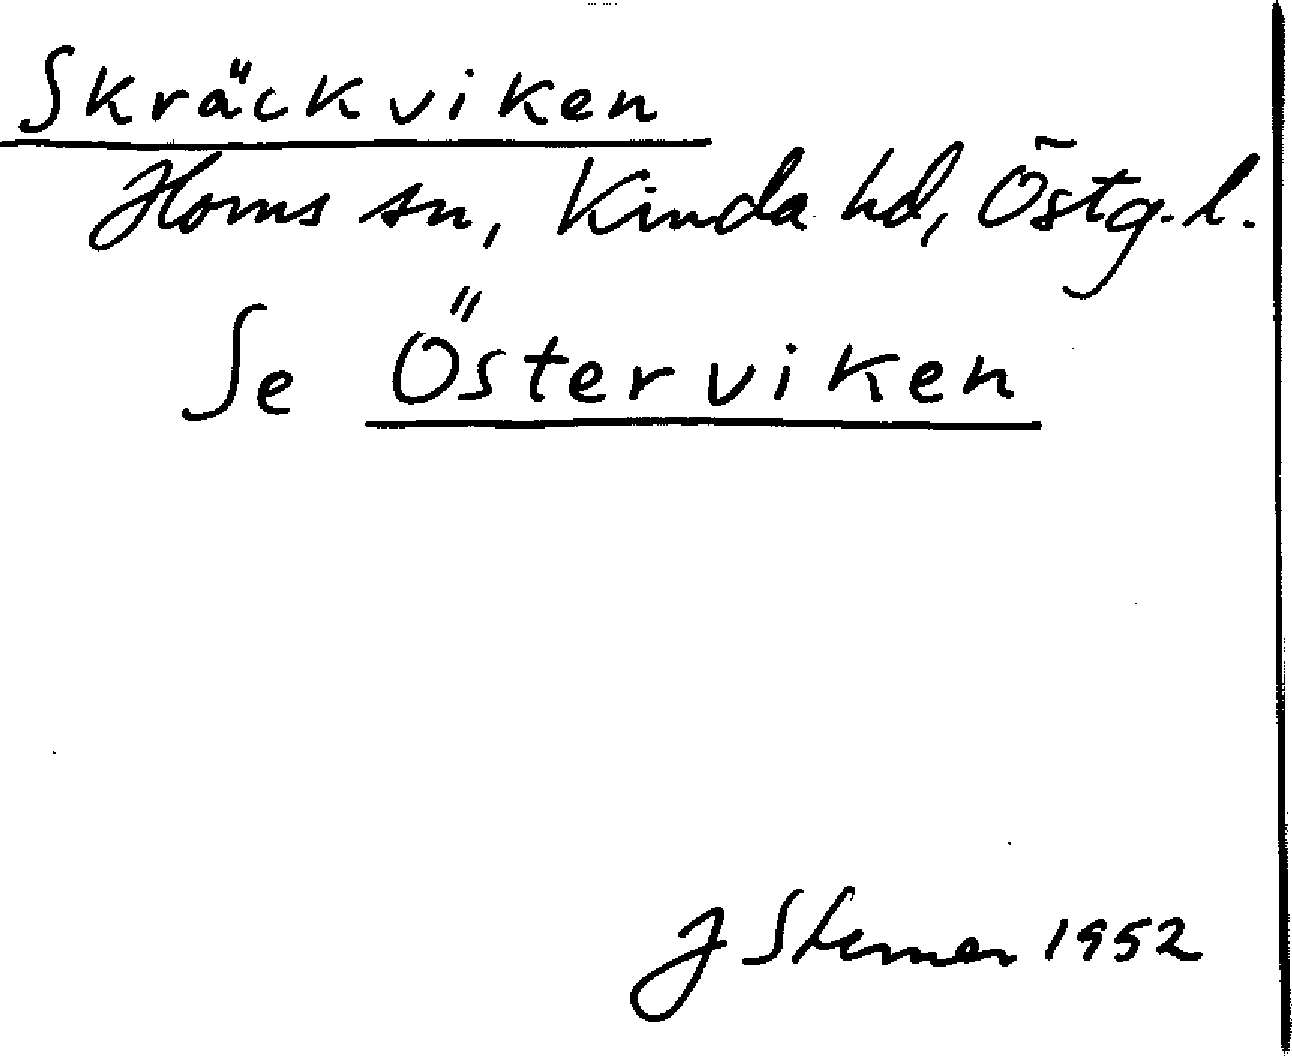 Skräckviken
Horns sn, Kinda hd, Östg. l.
Se Österviken
J 1952